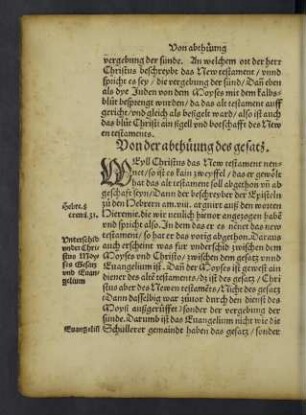 Von abthüung
vergebung der sünde. An welchem ort der herr
Christus beschreybt das New testament / vnnd
spricht es sey / die vergebung der sünd / Dañ eben
als dye Juden von dem Moyses mit dem kalbs
blüt besprengt wurden / da das alt testament auff
gericht / vnd gleich als besigelt ward / also ist auch
das blüt Christi ain sigell vnd botschafft des New
en testaments.
Von der abthüung des gesatz.
WEyll Christus das New testament nen-
net / so ist es kain zweyffel / das er gewölt
hat das alt testament soll abgethon vñ ab
geschafft seyn / Dann der beschreyber der Episteln
zů den Hebreern am.viii. arguirt auß den worten
Hieremie, die wir neulich hienor angezogen habẽ
vnd spricht also. In dem das er es nẽnet das new
testament / so hat er das vorig abgethon. Daraus
auch erscheint was für vnderschid zwischen dem
Moyses vnd Christo / zwischen dem gesatz vnnd
Euangelium ist. Dañ der Moyses ist gewest ain
diener des altẽ testamẽts / dz ist des gesatz / Chri
stus aber des Newen testamẽts / Nicht des gesatz
Dann dasselbig war zůuor durch den dienst des
Moysi außgerüfft / sonder der vergebung der
sünde. Darumb ist das Euangelium nicht wie die
Schüllerer gemaindt haben das gesatz / sonder
Hebre.8
Hiere.31.
Vnterschid
vnder Chri
stus Moy
ses Gesatz
vnd Euan
gelium
Euangeliũ